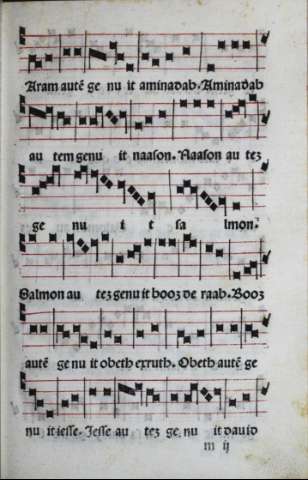 Aram autē ge nu it aminadab. Aminadab
au tem genu it naason. Naason au teȝ
ge nu i t sa lmon.
Salmon au teȝ genu it booȝ de raab. Booȝ
autē ge nu it obeth exruth. Obeth autē ge
nu it iesse. Iesse au teȝ ge nu it dauid
m ij